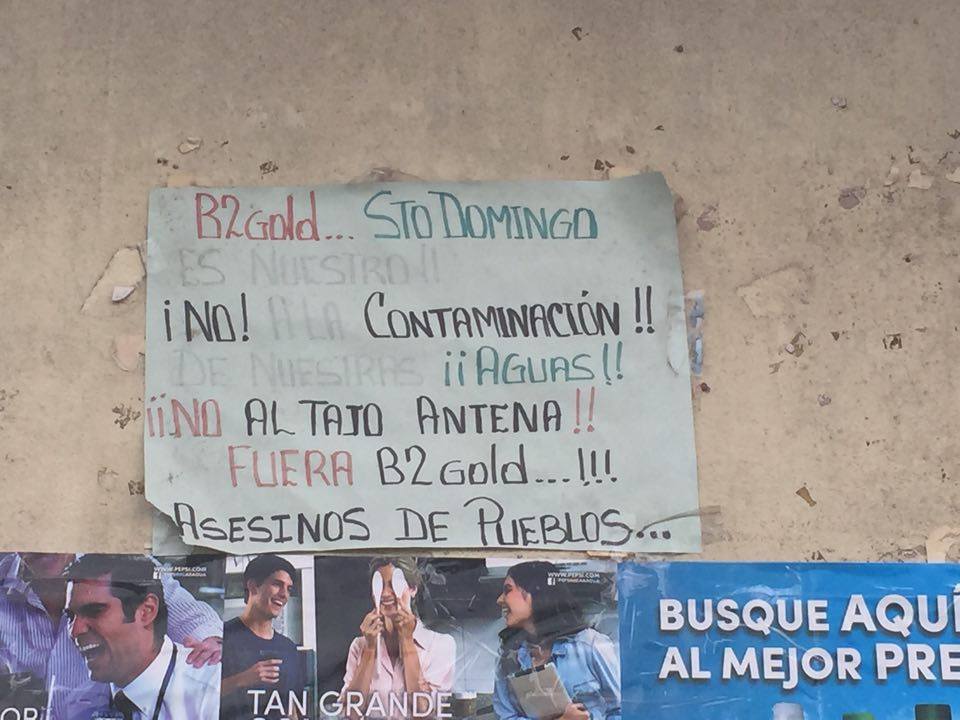 B2Gold... STO DOMINGO
ES NUESTRO!!
¡NO! A LA CONTAMINACIÓN!!
DE NUESTRAS ¡¡AGUAS!!
¡¡NO AL TAJO ANTENA!!
FUERA B2Gold...!!!
ASESINOS DE PUEBLOS...
WWW.PEPSI.COM
WWW.PEPSI.COM
TAN GRANDE
BUSQUE AQUÍ
AL MEJOR PRE